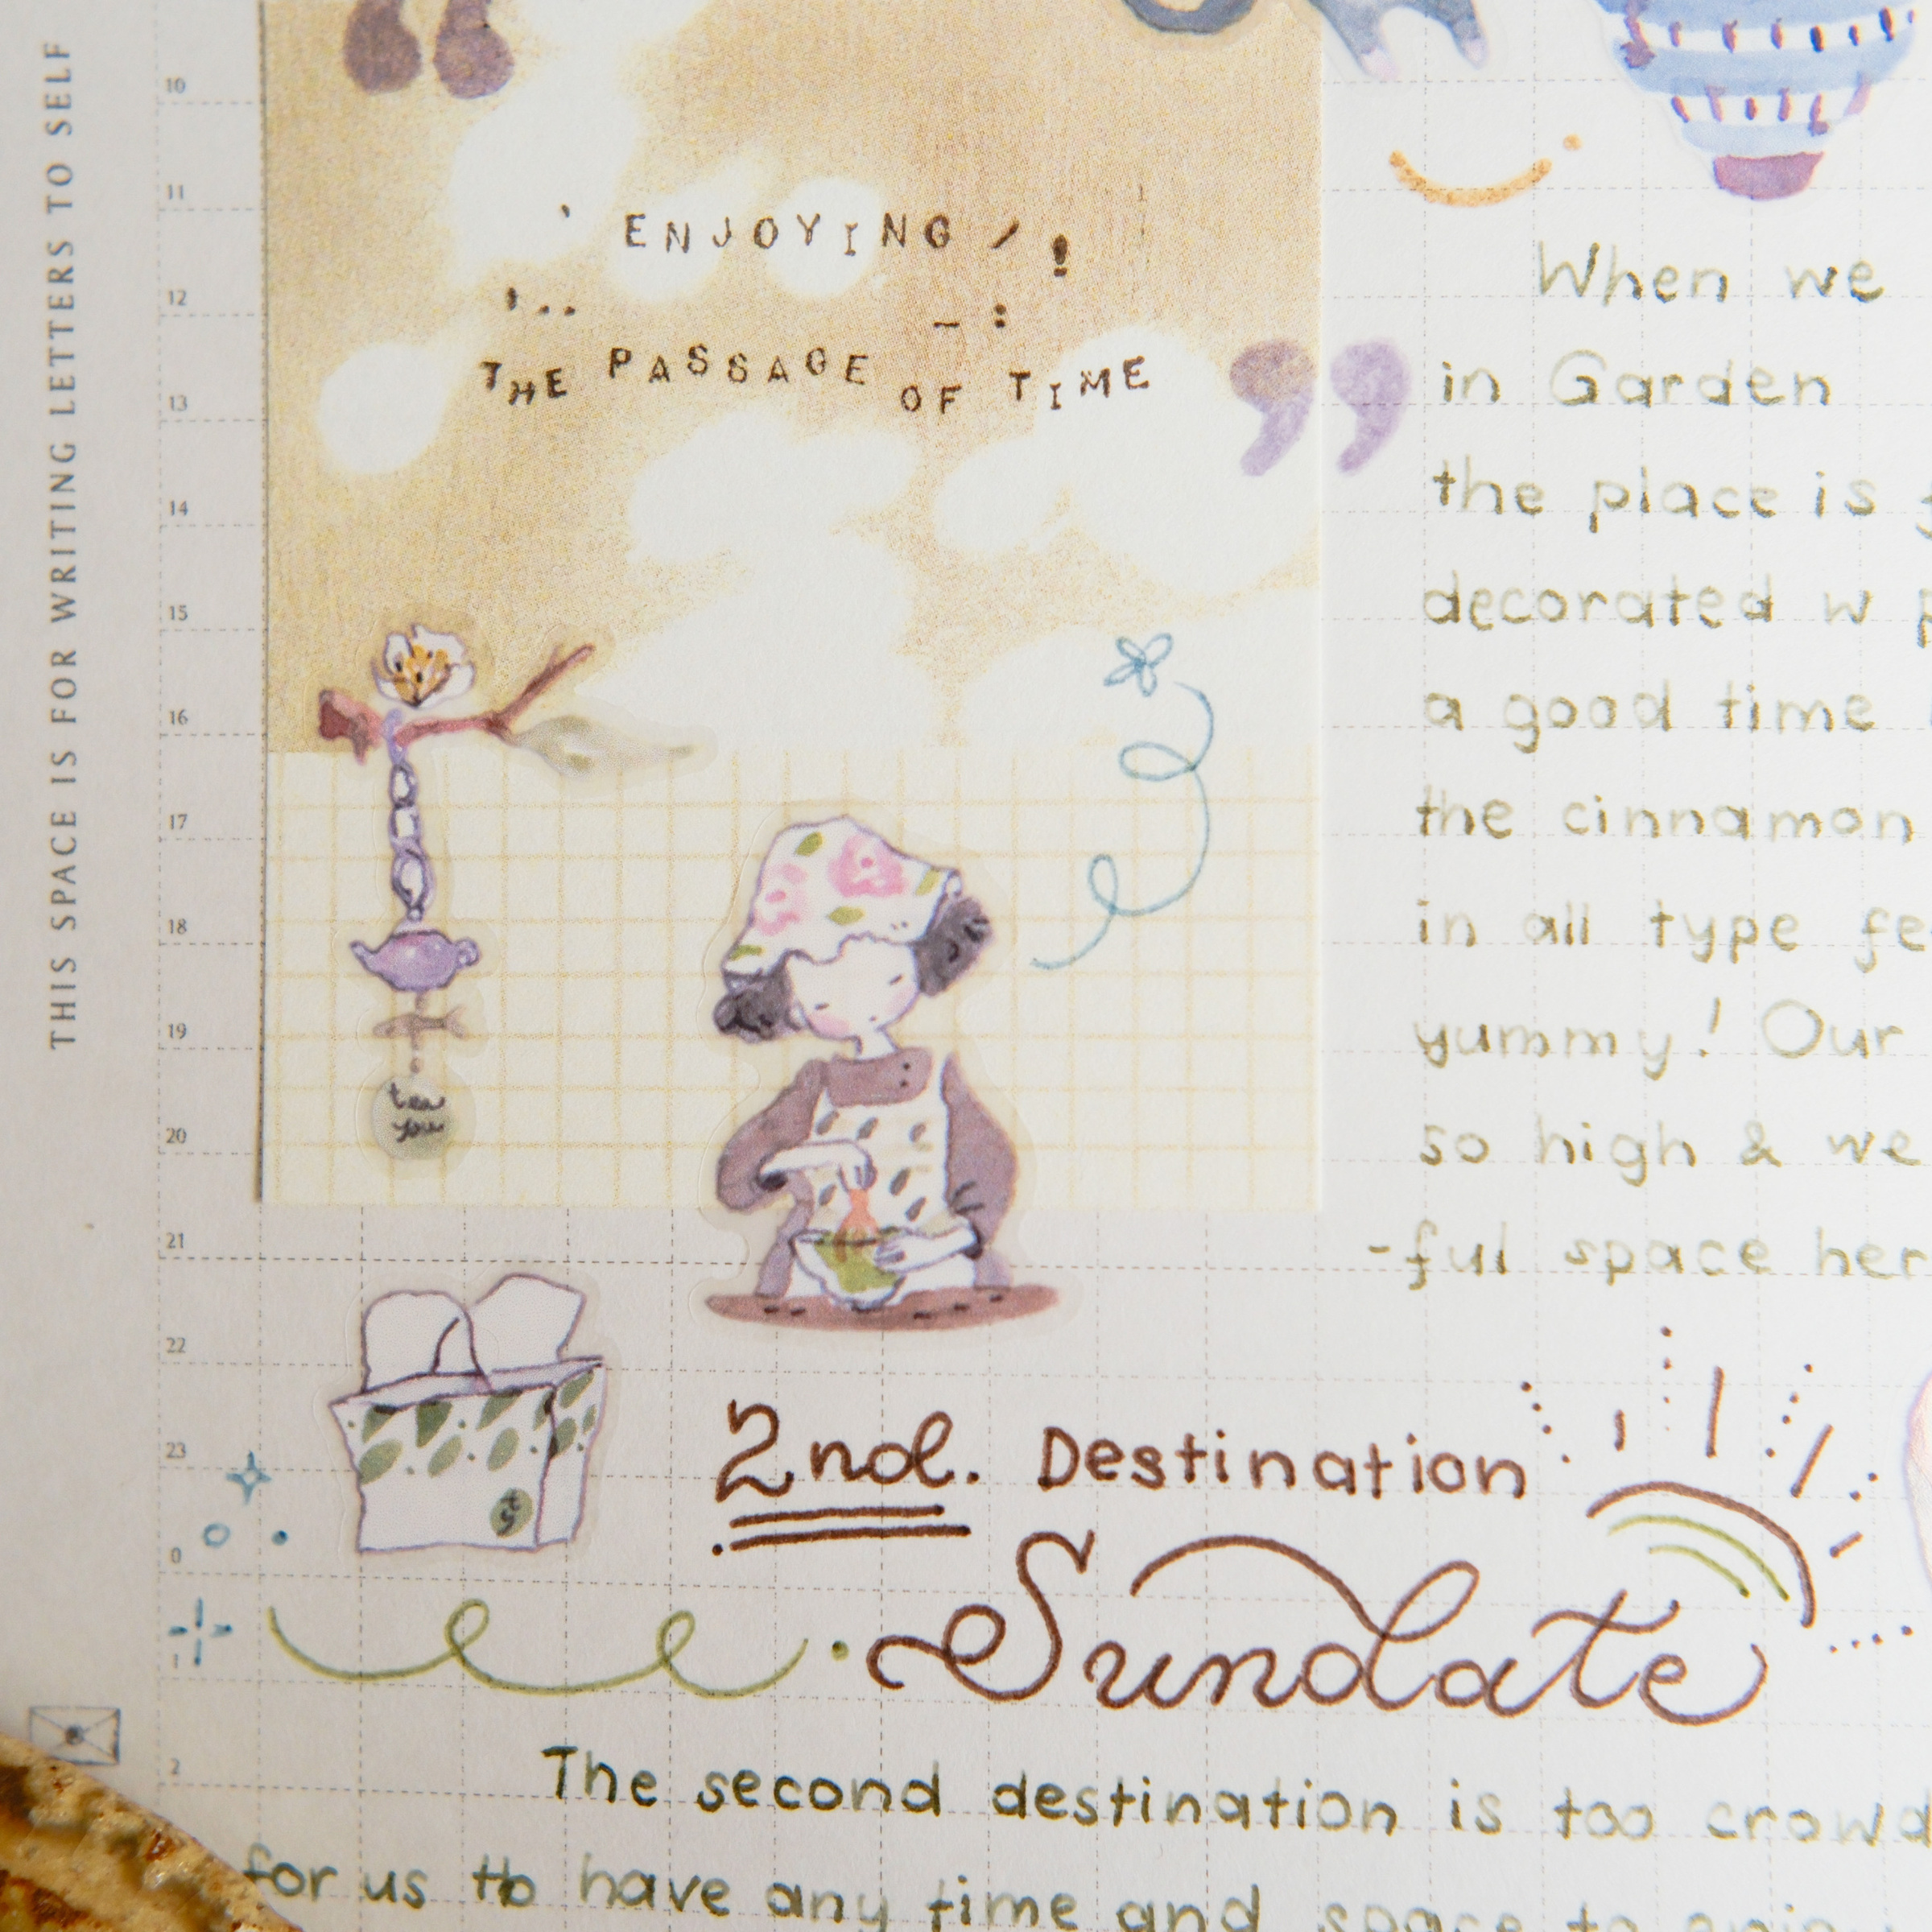 THIS SPACE IS FOR WRITING LETTERS TO SELF
10
11
12
13
14
15
16
17
18
19
20
21
22
23
0
1
2
“
ENJOYING / !
THE PASSAGE OF TIME ”
tea
you
When we
in Garden
the place is
decorated w
a good time
the cinnamon
in all type fe
yummy! Our
so high & we
-ful space her
2nd. Destination
Sundate
The second destination is too crowd
for us to have any time and space to